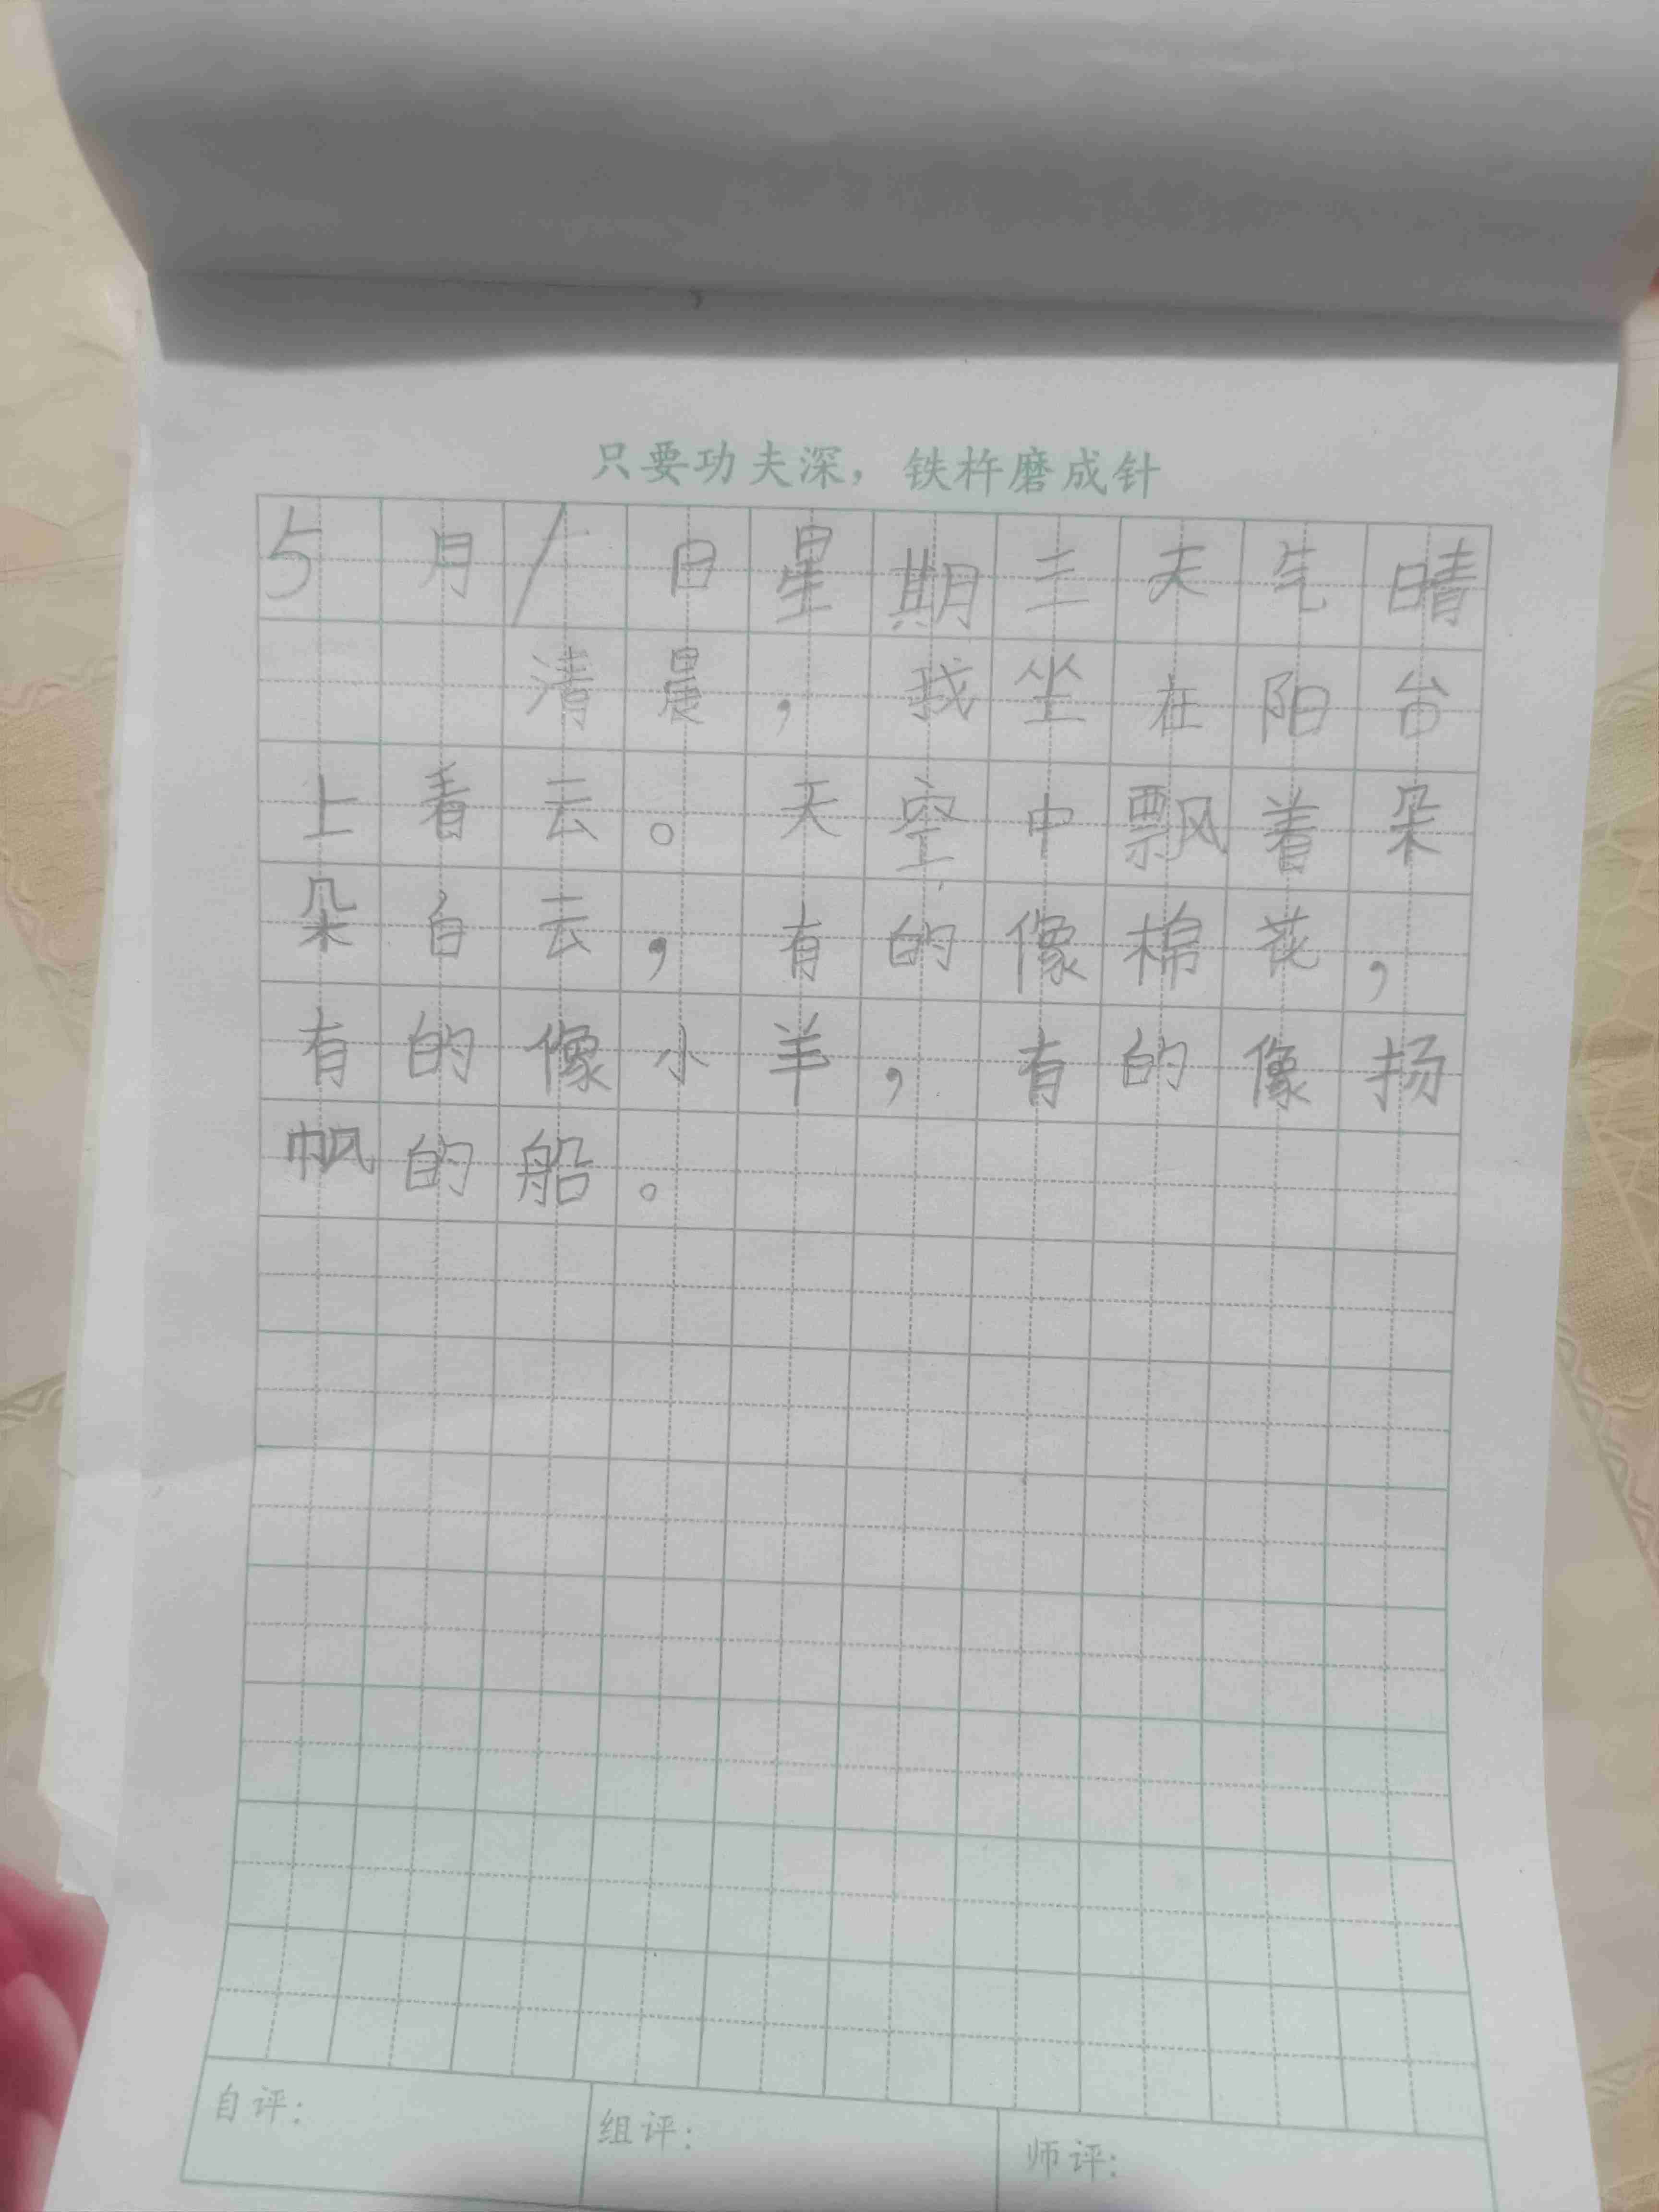 只要功夫深，铁杵磨成针
5月1日星期三天气晴
清晨，我坐在阳台
上看云。天空中飘着朵
朵白云，有的像棉花，
有的像小羊，有的像扬
帆的船。
自评：
组评：
师评：